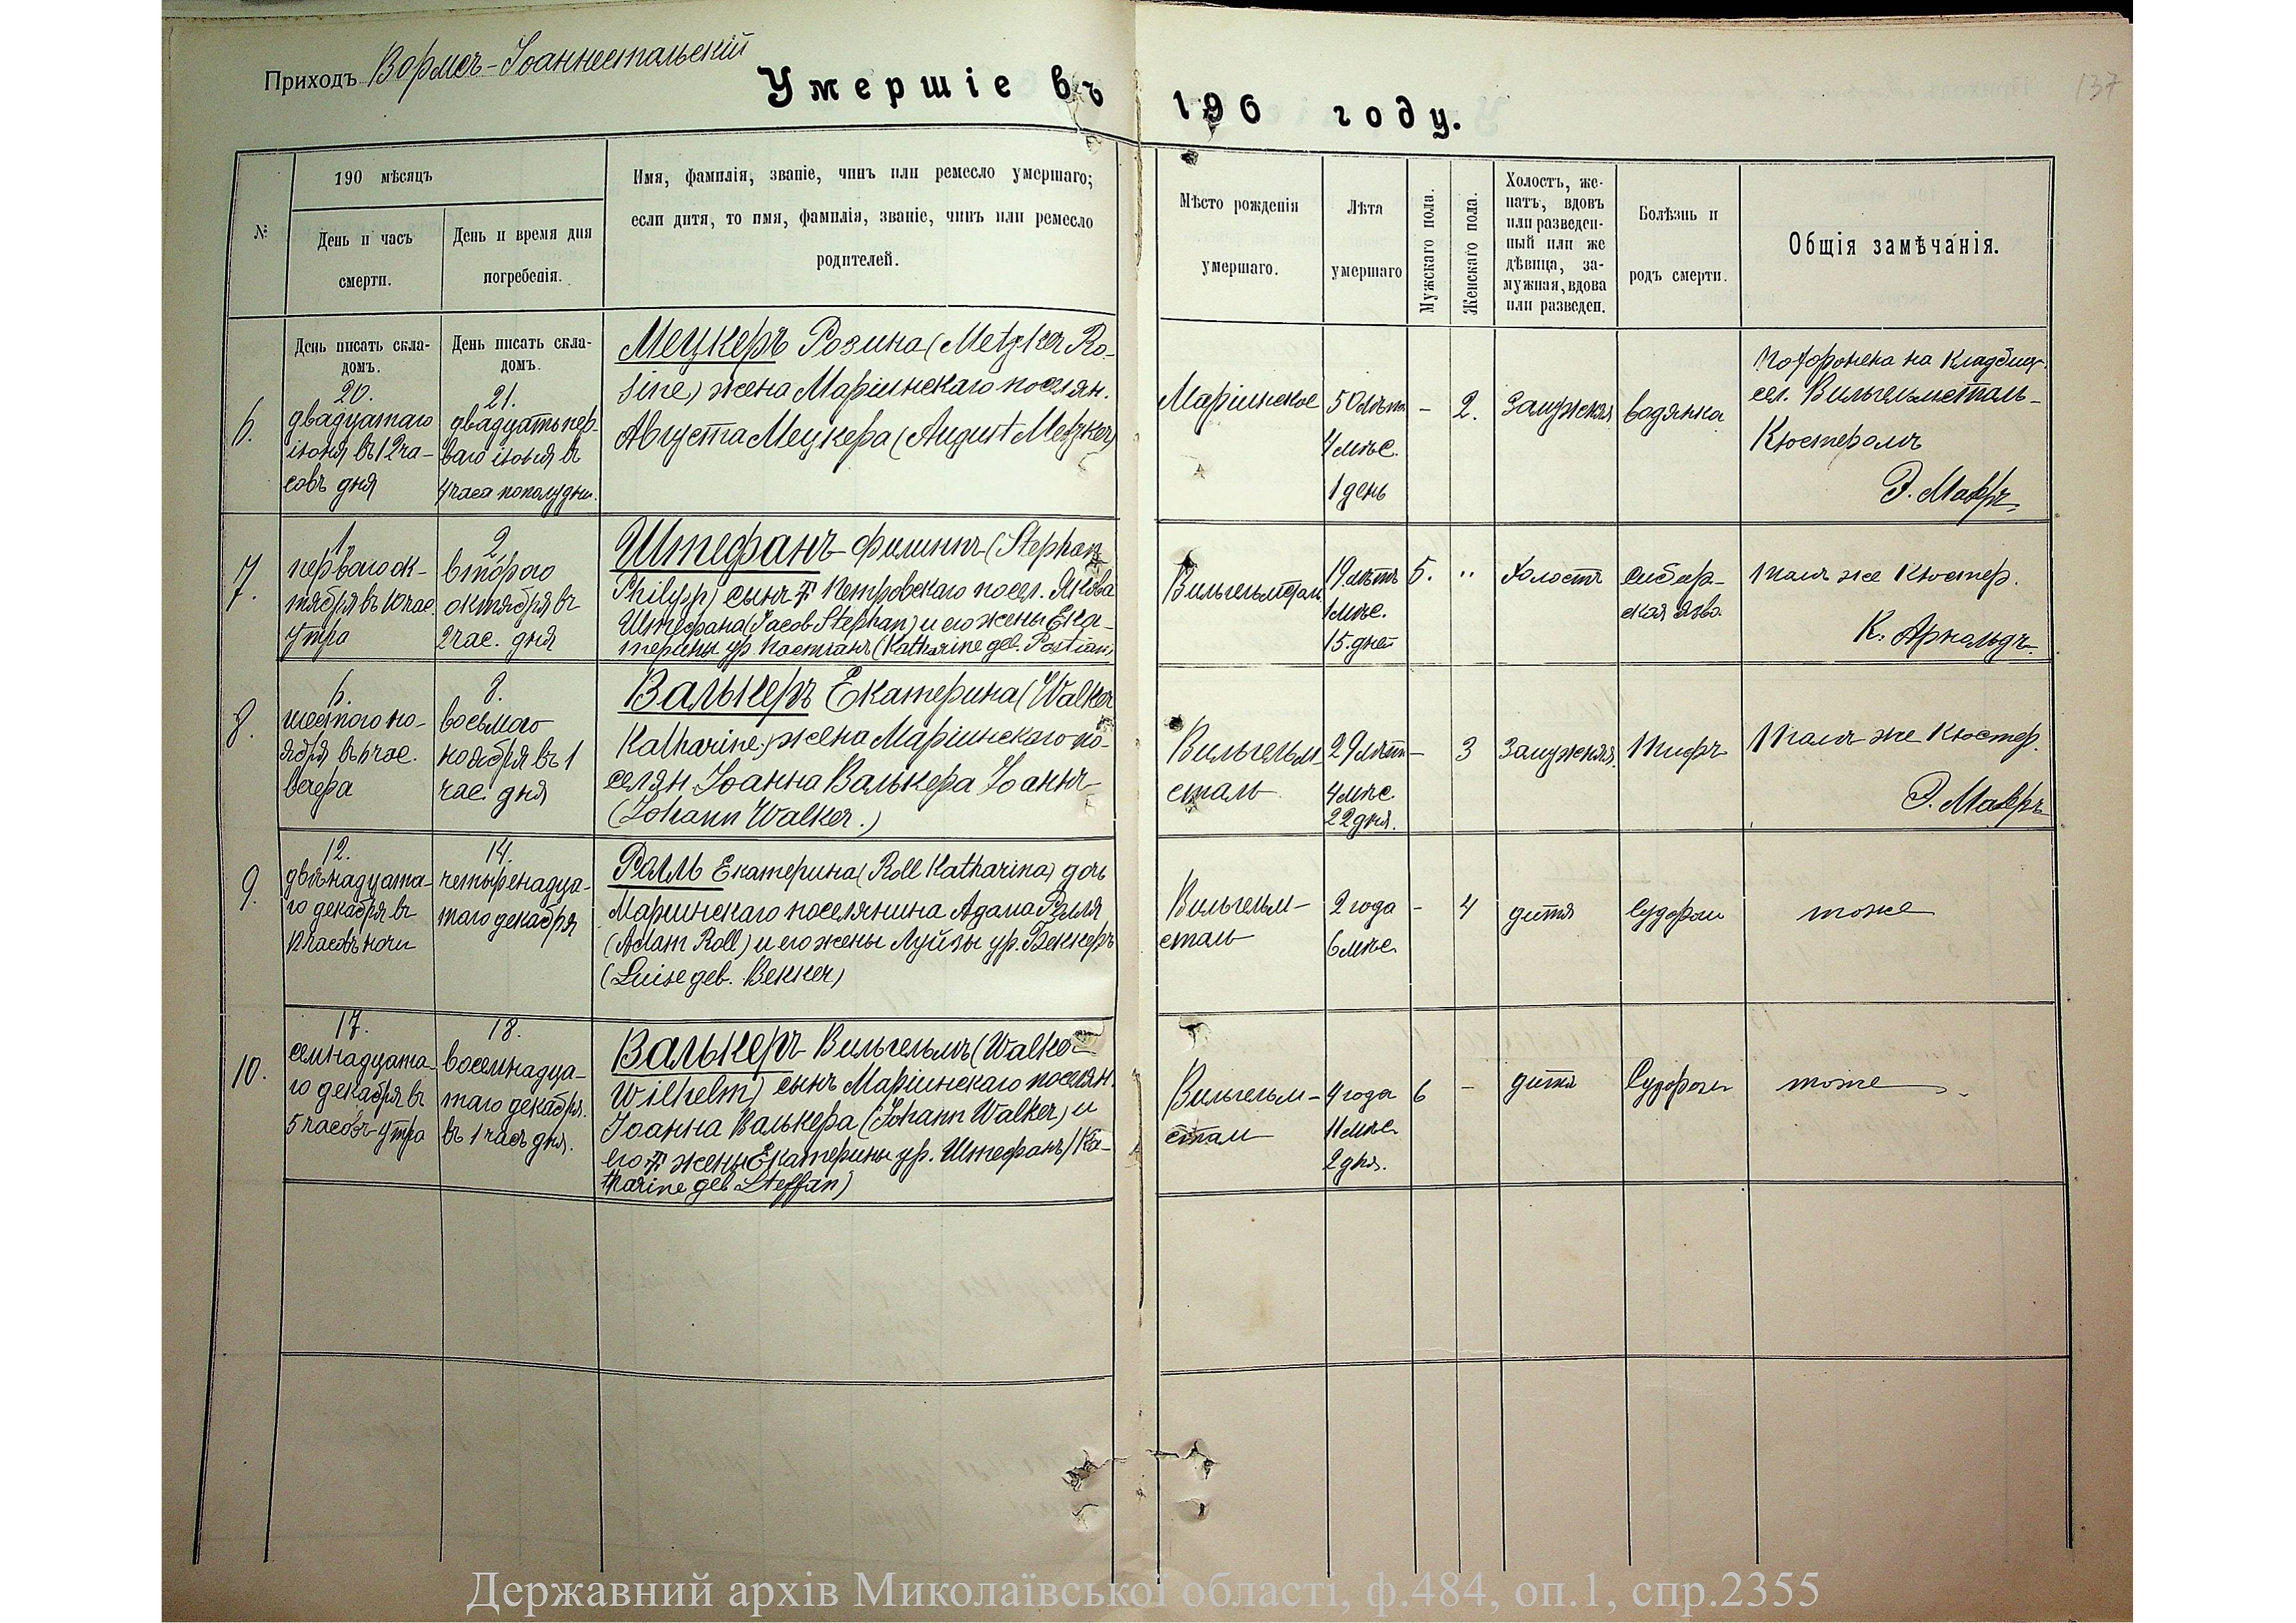 Приходъ Вормсъ-Іоаннестальскій
137
Умершіе въ 190 году.
№
190 мѣсяцъ
День и часъ смерти.
День и время дня погребенія.
Имя, фамилія, званіе, чинъ или ремесло умершаго;
если дитя, то имя, фамилія, званіе, чинъ или ремесло
родителей.
Мѣсто рожденія
умершаго.
Лѣта
умершаго
Мужскаго пола.
Женскаго пола.
Холостъ, же-
натъ, вдовъ
или разведен-
ный или же
дѣвица, за-
мужная, вдова
или разведен.
Болѣзнь и
родъ смерти.
Общія замѣчанія.
День писать скла-
домъ.
День писать скла-
домъ.
6.
20.
двадцатаго
іюня въ 12 ча-
совъ дня
21.
двадцать пер-
ваго іюня въ
4 часа пополудни.
Мецкеръ Розина (Metzker Ro-
sine) жена Маріинскаго поселян.
Августа Мецкера (August Metzker)
Маріинское
50 лѣтъ
4 мѣс.
1 день
-
2.
Замужняя
водянка
Похоронена на кладбищ.
сел. Вильгельмсталь-
Кюстеромъ
7.
1
перваго ок-
тября въ 10 час.
утра
2
второго
октября въ
2 час. дня
Штефанъ Филиппъ (Stephan
Philipp) сынъ Петровскаго посел. Якова
Штефана (Jacob Stephan) и его жены Ека-
терины ур. Постіанъ (Katharine geb. Postian)
Вильгельмсталь
19 лѣтъ
1 мѣс.
15 дней
5.
"
Холостъ
сибир-
ская язва
тамъ же Кюстер.
К. Арнольдъ
8.
6.
шестого но-
ября въ час.
вечера
8.
восьмого
ноября въ 1
час. дня
Валькеръ Екатерина (Walker
Katharine) жена Маріинскаго по-
селян. Іоанна Валькера Іоанна
(Johann Walker.)
Вильгельм
сталь
29 лѣтъ
4 мѣс.
22 дня.
-
3
Замужняя.
Тифъ
тамъ же Кюстер.
9.
12.
двѣнадцата-
го декабря въ
часовъ ночи
14.
четырнадца-
таго декабря
Ролль Екатерина (Roll Katharina) дочь
Маріинскаго поселянина Адама Ролля
(Adam Roll) и его жены Луйзы ур. Беккеръ
(Luise geb. Bekker)
Вильгельм-
сталь
2 года
6 мѣс.
-
4
дитя
Судороги
тоже
10.
17.
семнадцата-
го декабря въ
5 часовъ утра
18.
восемнадца-
таго декабря.
въ 1 часъ дня.
Валькеръ Вильгельмъ (Walker
Wilhelm) сынъ Маріинскаго поселян.
Іоанна Валькера (Johann Walker) и
его жены Екатерины ур. Штефанъ (Ka-
tharine geb. Steffan)
Вильгельм-
стал
4 года
11 мѣс.
2 дня.
6
-
дитя
Судороги
тоже
Державний архів Миколаївської області, ф.484, оп.1, спр.2355